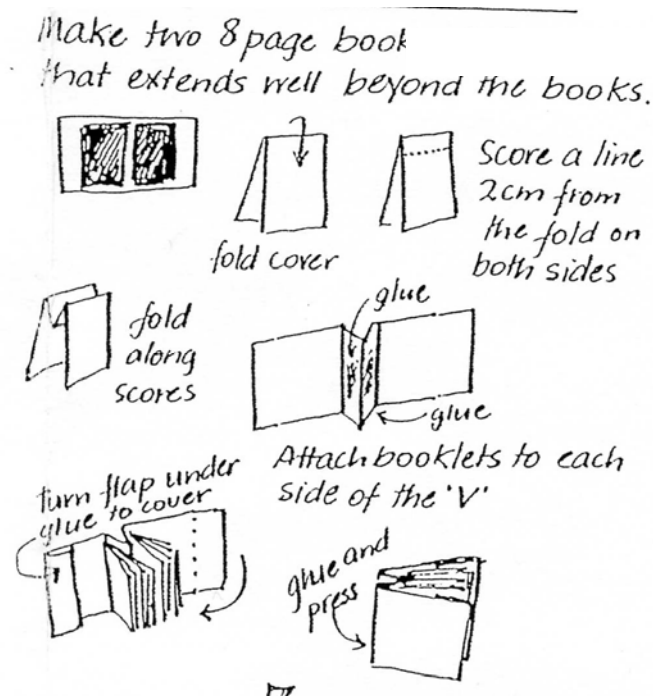 Make two 8 page book
that extends well beyond the books.
fold cover
Score a line
2cm from
the fold on
both sides
fold
along
scores
glue
glue
Attach booklets to each
side of the 'V'
turn flap under
glue to cover
glue and
press